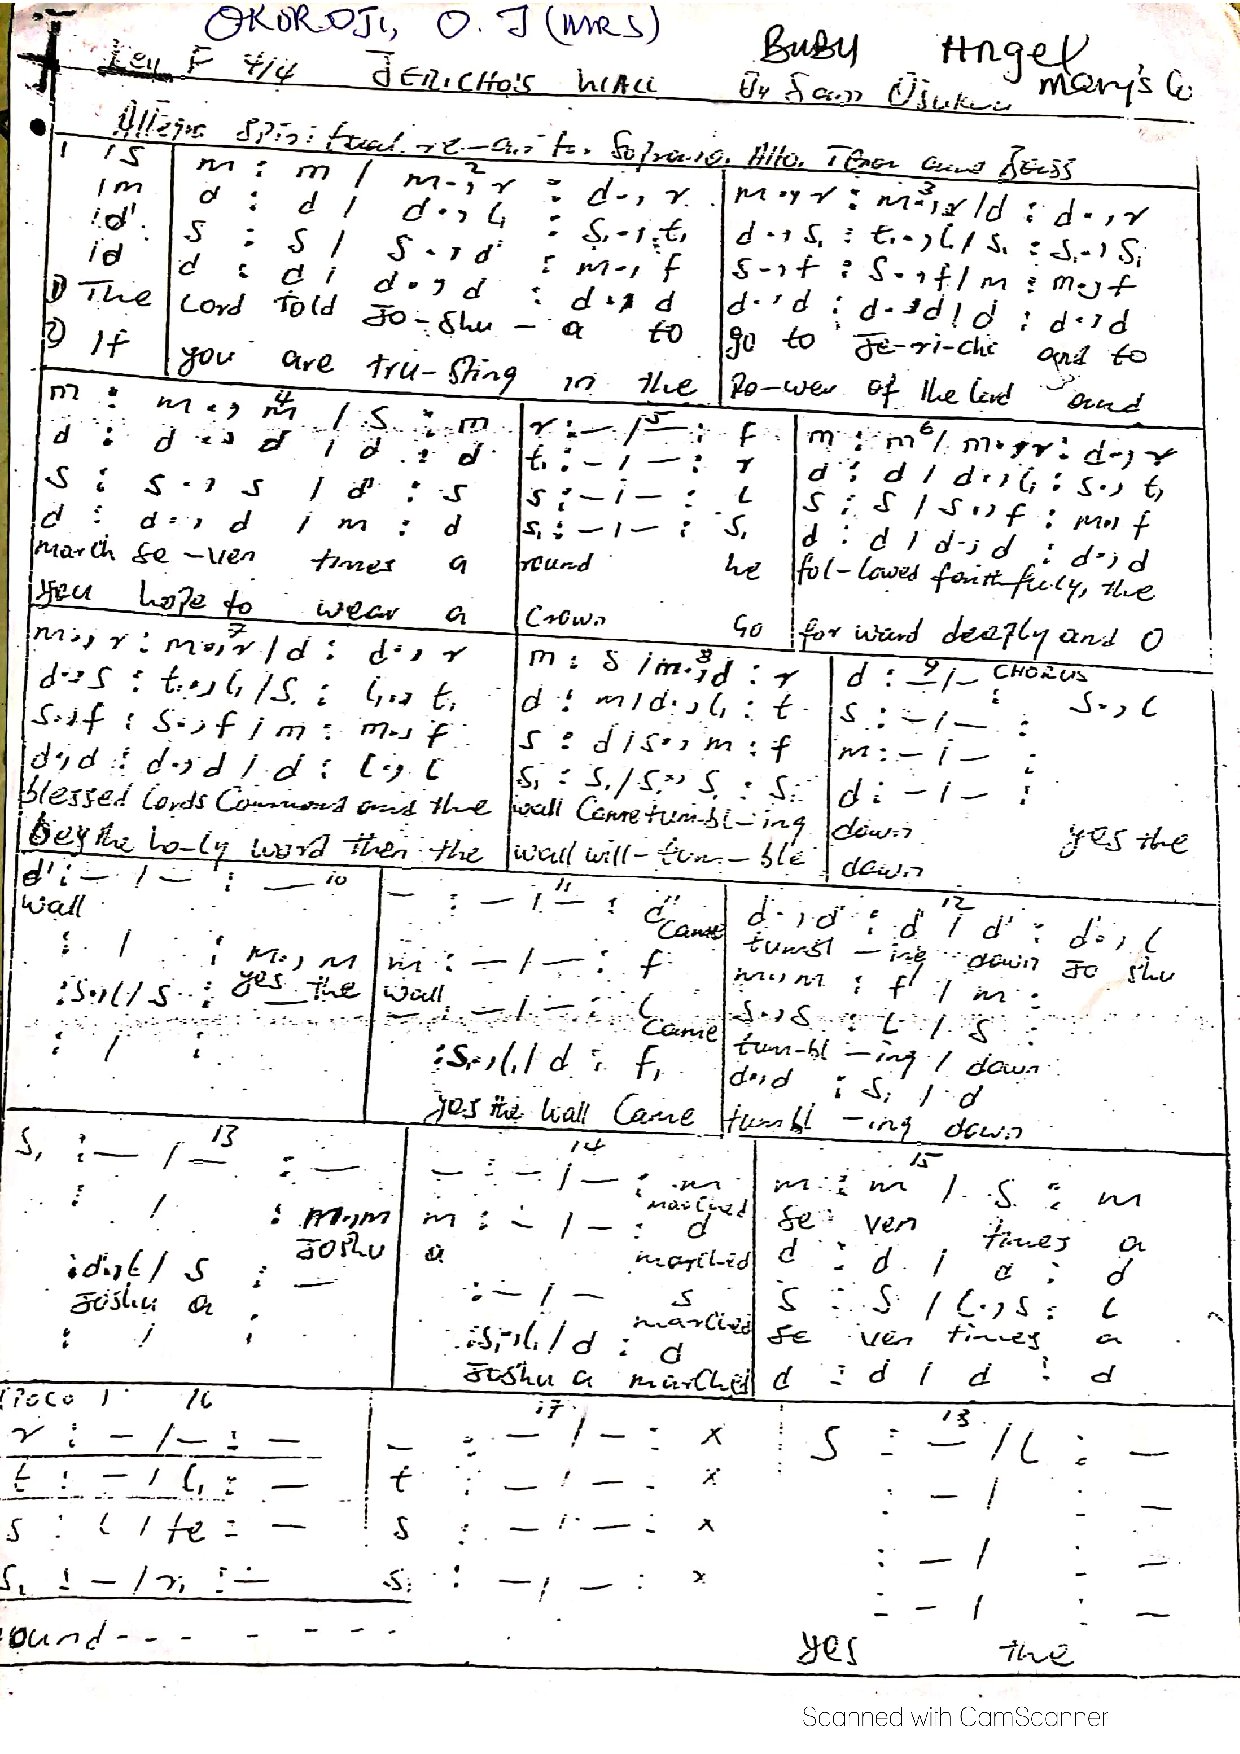 OKOROJI, O. J (MRS)
BUBU Angel
Key F 4/4 JERICHO'S WALL By Sam Ojukwu Mary's Co
Allegro Spiritual re-arr for Soprano, Alto, Tenor and Bass
1 :s | m : m / m.,r : d.,r | m.,r : m.,r / d : d.,r
:m | d : d / d.,l, : s,.,t, | d.,s, : t,.,l, / s, : s,.,s,
:d' | s : s / s.,d' | s.,f : s.,f / m : m.,f
:d | d : d / d.,d : m.,f | d.,d : d.,d / d : d.,d
1) The Lord told Jo-shu-a to go to Je-ri-cho and to
2) If you are tru-sting in the Po-wer of the Lord and
m : m.,m / s : m | r : - / - : f | m : m / m.,r : d.,r
d : d.,d / d : d | t, : - / - : r | d : d / d.,l, : s,.,t,
s : s.,s / d' : s | s : - / - : l | s : s / s.,f : m.,f
d : d.,d / m : d | s, : - / - : s, | d : d / d.,d : d.,d
march se-ven times a round he fol-lowed faithfully, the
you hope to wear a crown Go for ward deeply and O
m.,r : m.,r / d : d.,r | m : s / m.,d : r | d : - / - CHORUS : s.,l
d.,s : t,.,l, / s, : l,.,t, | d : m / d.,l, : t | s : - / - :
s.,f : s.,f / m : m.,f | s : d / s.,m : f | m : - / - :
d.,d : d.,d / d : l.,l | s, : s, / s,.,s, : s, | d : - / - :
blessed Lords Command and the wall Came tum-bl-ing down yes the
bey the ho-ly word then the wall will-tum-ble down
d' : - / - : - | - : - / - : d' | d'.,d' : d' / d' : d'.,l
wall Came tumbl-ing down Jo shu
: / : m.,m | m : - / - : f | m.,m : f / m :
yes the wall
: s.,l / s : | - : - / - : l | s.,s : l / s :
Came tum-bl-ing / down
: / : | : s,.,l, / d : f, | d.,d : s, / d
yes the wall Came tumbl-ing down
s, : - / - : - | - : - / - : m | m : m / s : m
marched se ven times a
: / : m.,m | m : - / - : d | d : d / d : d
Joshu a marched
: d.,l / s : - | : - / - s | s : s / l.,s : l
Joshu a marched se ven times a
: / : | : s,.,l, / d : d | d : d / d : d
Joshu a marched
(Poco) 16 17 18
r : - / - : - | - : - / - : x | s : - / l : -
t : - / l, : - | t : - / - : x | : - / : -
s : l / te : - | s : - / - : x | : - / : -
s, : - / r, : - | s, : - / - : x | : - / : -
ound- - - - - - - - yes the
Scanned with CamScanner